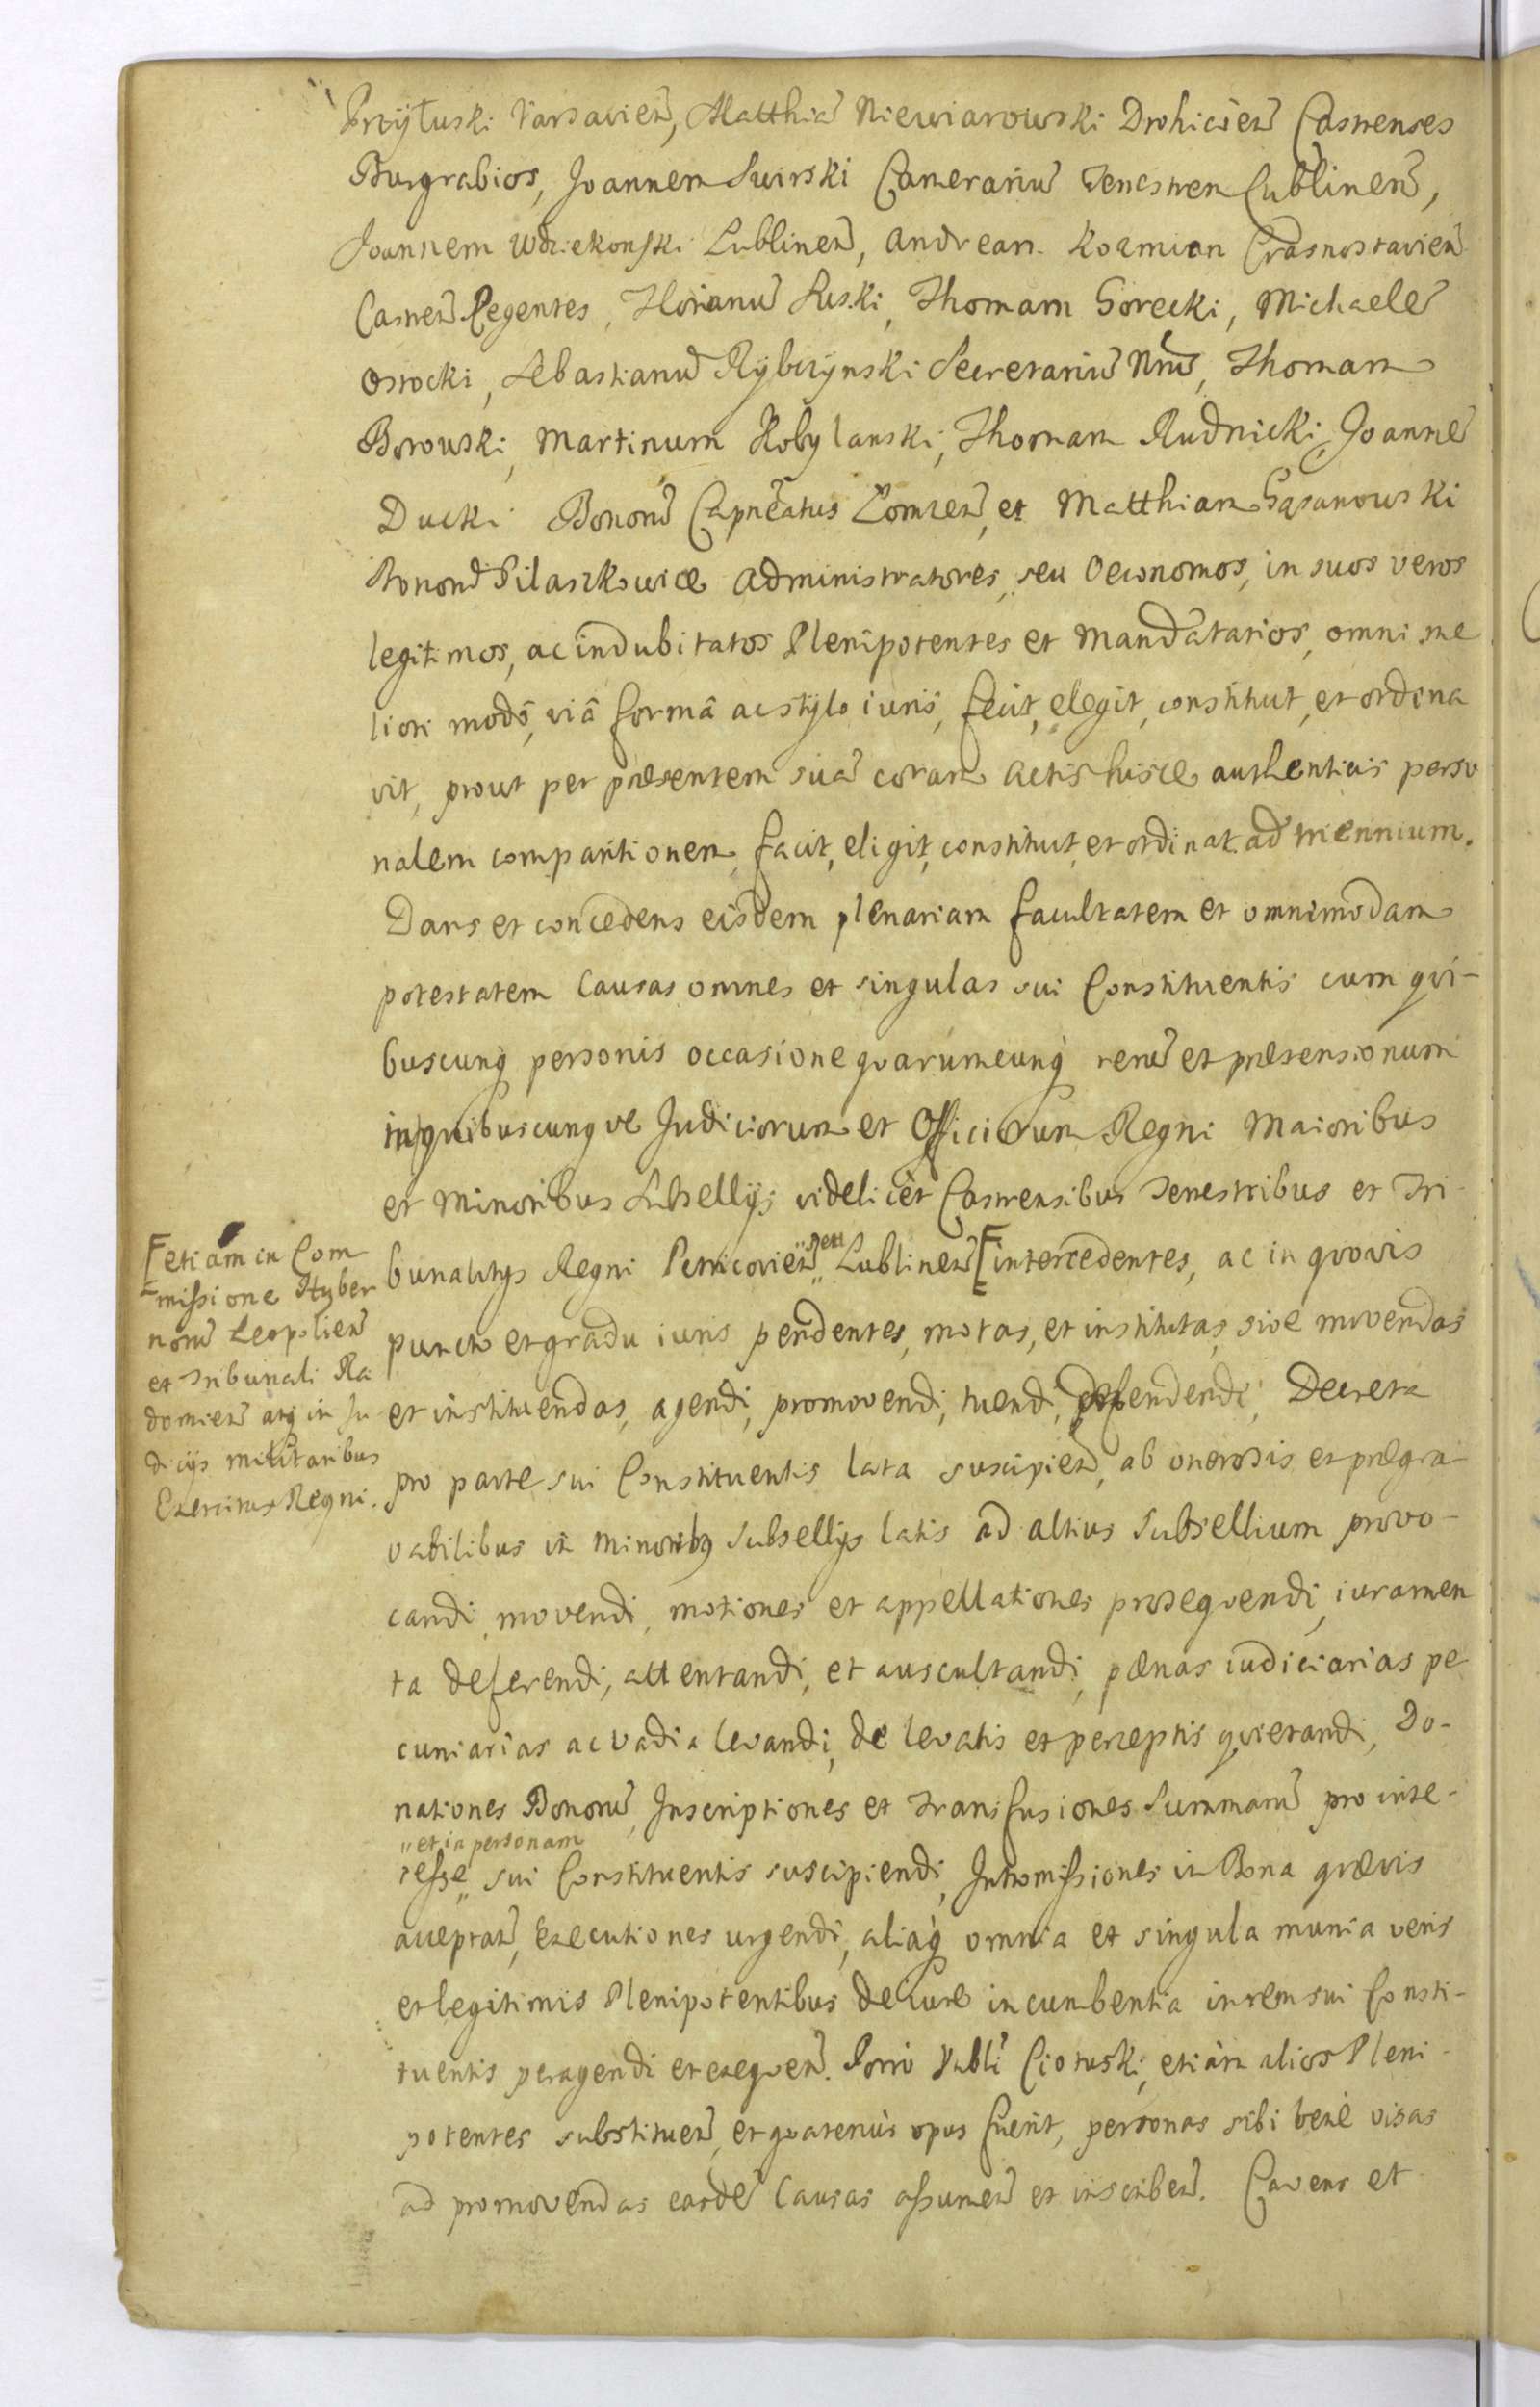 Przyłuski Varsavień, Matthiã Niewiarowski Drohicień Castrenses
Burgrabios, Joannem Swirski Camerariũ Terrestrem Lublineñ,
Joannem Wdziekonski Lublineñ, Andream Kozmian Crasnostavień
Castreñ Regentes, Florianũ Suski, Thomam Gorecki, Michaelẽ
Ostocki, Sebastianũ Rybczynski Secretariũ Nrũ, Thomam
Borowski, Martinum Kobylanski, Thomam Rudnicki, Joannẽ
Ducki Bonorũ Capneatus Łomzeñ, et Matthiam Gąsanowski
Bonorũ Pilaszkowice Administratores, seu Oeconomos, in suos veros
legitimos, ac indubitatos Plenipotentes et Mandatarios, omni me
liori modô, viâ formâ ac stylo iuris, fecit, elegit, constituit, et ordina
vit, prout per præsentem suã coram Actis hisce authenticis perso
nalem comparitionem, facit, eligit, constituit, et ordinat ad triennium.
Dans et concedens eisdem plenariam facultatem et omnimodam
potestatem Causas omnes et singulas sui Constituentis cum qui-
buscunq personis occasione quarumcunq rerũ et prætensionum
in quibuscunque Judiciorum et Officiorum Regni Maioribus
et Minoribus Subsellijs videlicèt Castrensibus Terrestribus et Tri-
bunalitijs Regni Petricovień et Lublineñ [intercedentes, ac in quovis
puncto et gradu iuris pendentes, motas, et institutas, sive movendas
et instituendas, agendi, promovendi, tuendi, defendendi, Decreta
pro parte sui Constituentis lata suscipień, ab onerosis et prægra
vabilibus in Minoribq Subsellijs latis ad altius Subsellium provo-
candi, movendi, motiones et appellationes prosequendi, iuramen
ta deferendi, attentandi, et auscultandi, pænas iudiciarias pe
cuniarias ac vadia levandi, de levatis et perceptis quietandi, Do-
nationes Bonorũ, Inscriptiones et Transfusiones Summarũ pro inte-
"et in personam
resse" sui Constituentis suscipiendi, Intromissiones in Bona quævis
acceptań, Executiones urgendi, aliaq omnia et singula munia veris
et legitimis Plenipotentibus de iure incumbentia in rem sui Consti-
tuentis peragendi et exequeñ. Porrò Nobli Ciotuski, etiàm alios Pleni-
potentes substitueñ, et quatenùs opus fuerit, personas sibi benè visas
ad promovendas easdẽ Causas assumeñ et inscribeñ. Cavens et
[etiàm in Com
missione Hyber
norũ Leopolień
et Tribunali Ra
domień atq in Ju
dicijs Militaribus
Exercitus Regni.